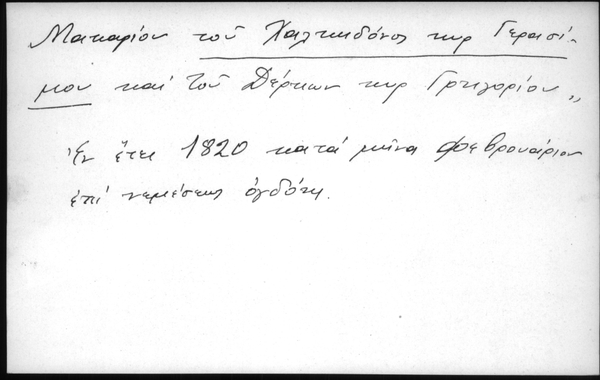 Μακαρίου τοῦ Χαλκηδόνος κυρ Γερασί-
μου καί τοῦ Δέρκων κυρ Γρηγορίου„
Ἐν ἔτει 1820 κατά μῆνα Φεβρουάριον
ἐπί νεμέσεως ὀγδόης.